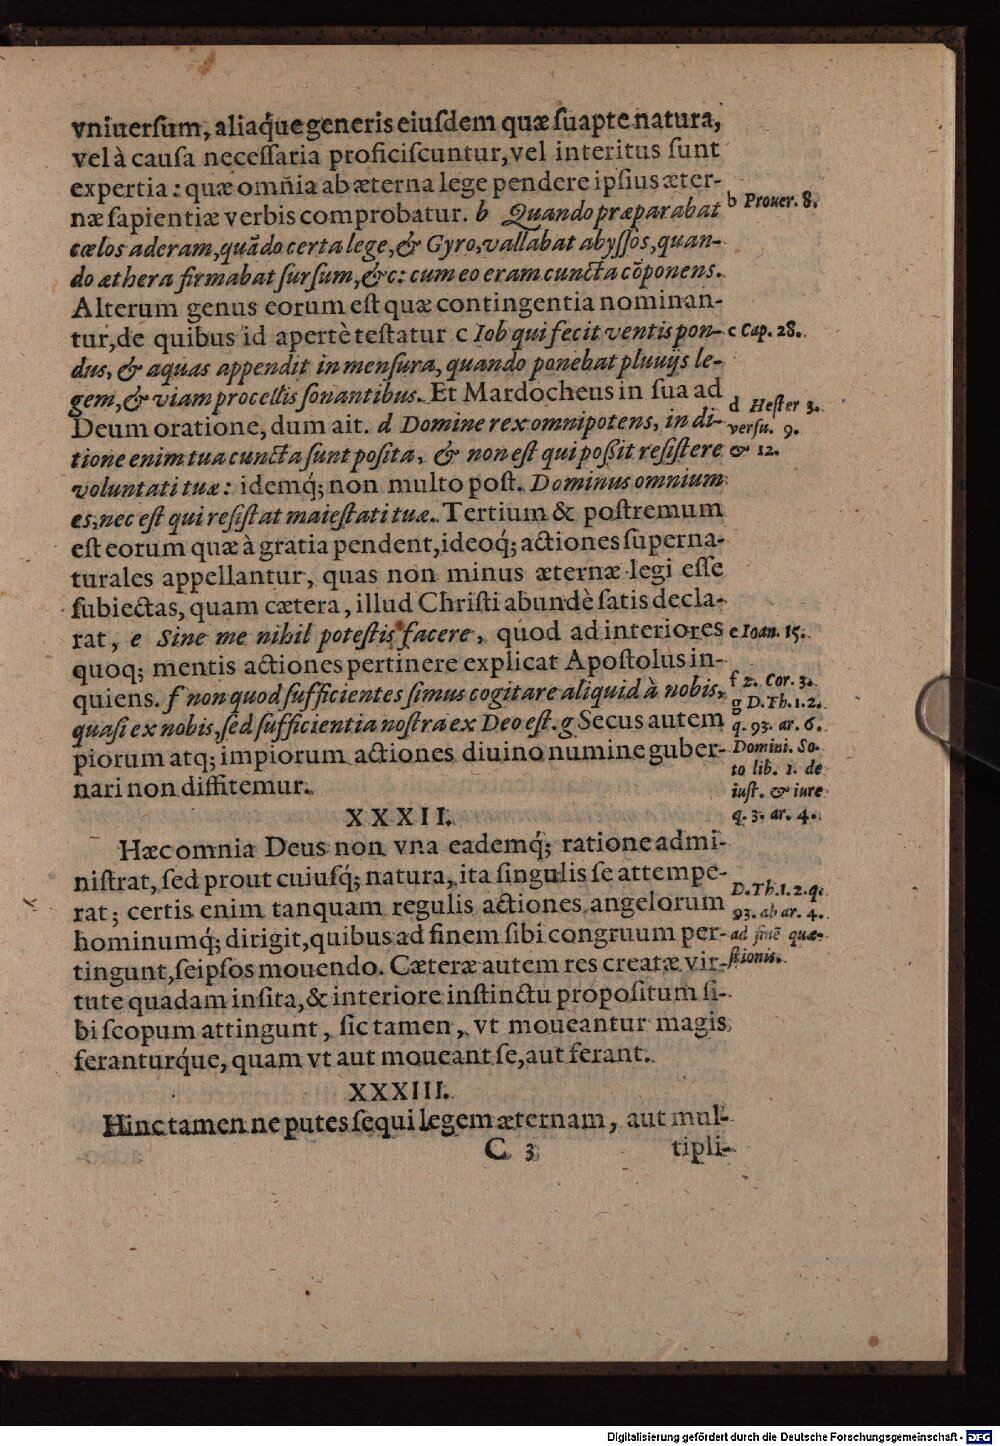 vniuerſum, aliaq́ue generis eiuſdem quæ ſuapte natura,
vel à cauſa neceſſaria proficiſcuntur, vel interitus ſunt
expertia: quæ omñia ab æterna lege pendere ipſius æter-
næ ſapientiæ verbis comprobatur. b Quando præparabat
cœlos aderam, quãdo certa lege, & Gyro, vallabat abyſſos, quan-
do æthera firmabat ſurſum, &c: cum eo eram cuncta cõponens.
Alterum genus eorum eſt quæ contingentia nominan-
tur, de quibus id apertè teſtatur c Iob qui fecit ventis pon-
dus, & aquas appendit in menſura, quando ponebat pluuijs le-
gem, & viam procellis ſonantibus. Et Mardocheus in ſua ad
Deum oratione, dum ait. d Domine rex omnipotens, in di-
tione enim tua cuncta ſunt poſita, & non eſt qui poßit reſiſtere
voluntati tuæ: idemq́; non multo poſt. Dominus omnium
es, nec eſt qui reſiſtat maieſtati tuæ. Tertium & poſtremum
eſt eorum quæ à gratia pendent, ideoq́; actiones ſuperna-
turales appellantur, quas non minus æternæ legi eſſe
ſubiectas, quam cætera, illud Chriſti abundè ſatis decla-
rat, e Sine me nihil poteſtis facere, quod ad interiores
quoq; mentis actiones pertinere explicat Apoſtolus in-
quiens. f non quod ſufficientes ſimus cogitare aliquid à nobis,
quaſi ex nobis, ſed ſufficientia noſtra ex Deo eſt. g Secus autem
piorum atq; impiorum actiones diuino numine guber-
nari non diffitemur.
b Prouer. 8.
c Cap. 28.
d Heſter 3.
verſu. 9.
& 12.
e Ioan. 15.
f 2. Cor. 3.
g D. Th. 1. 2.
q. 93. ar. 6.
Domini. So-
to lib. 1. de
iuſt. & iure
q. 3. ar. 4.
XXXII.
Hæc omnia Deus non vna eademq́; ratione admi-
niſtrat, ſed prout cuiuſq́; natura, ita ſingulis ſe attempe-
rat; certis enim tanquam regulis actiones angelorum
hominumq́; dirigit, quibus ad finem ſibi congruum per-
tingunt, ſeipſos mouendo. Cæteræ autem res creatæ vir-
tute quadam inſita, & interiore inſtinctu propoſitum ſi-
bi ſcopum attingunt, ſic tamen, vt moueantur magis
feranturq́ue, quam vt aut moueant ſe, aut ferant.
D. Th. 1. 2. q.
93. ab ar. 4.
ad finẽ quæ-
ſtionis.
XXXIII.
Hinc tamen ne putes ſequi legem æternam, aut mul-
C 3 tipli-
Digitalisierung gefördert durch die Deutsche Forschungsgemeinschaft - DFG